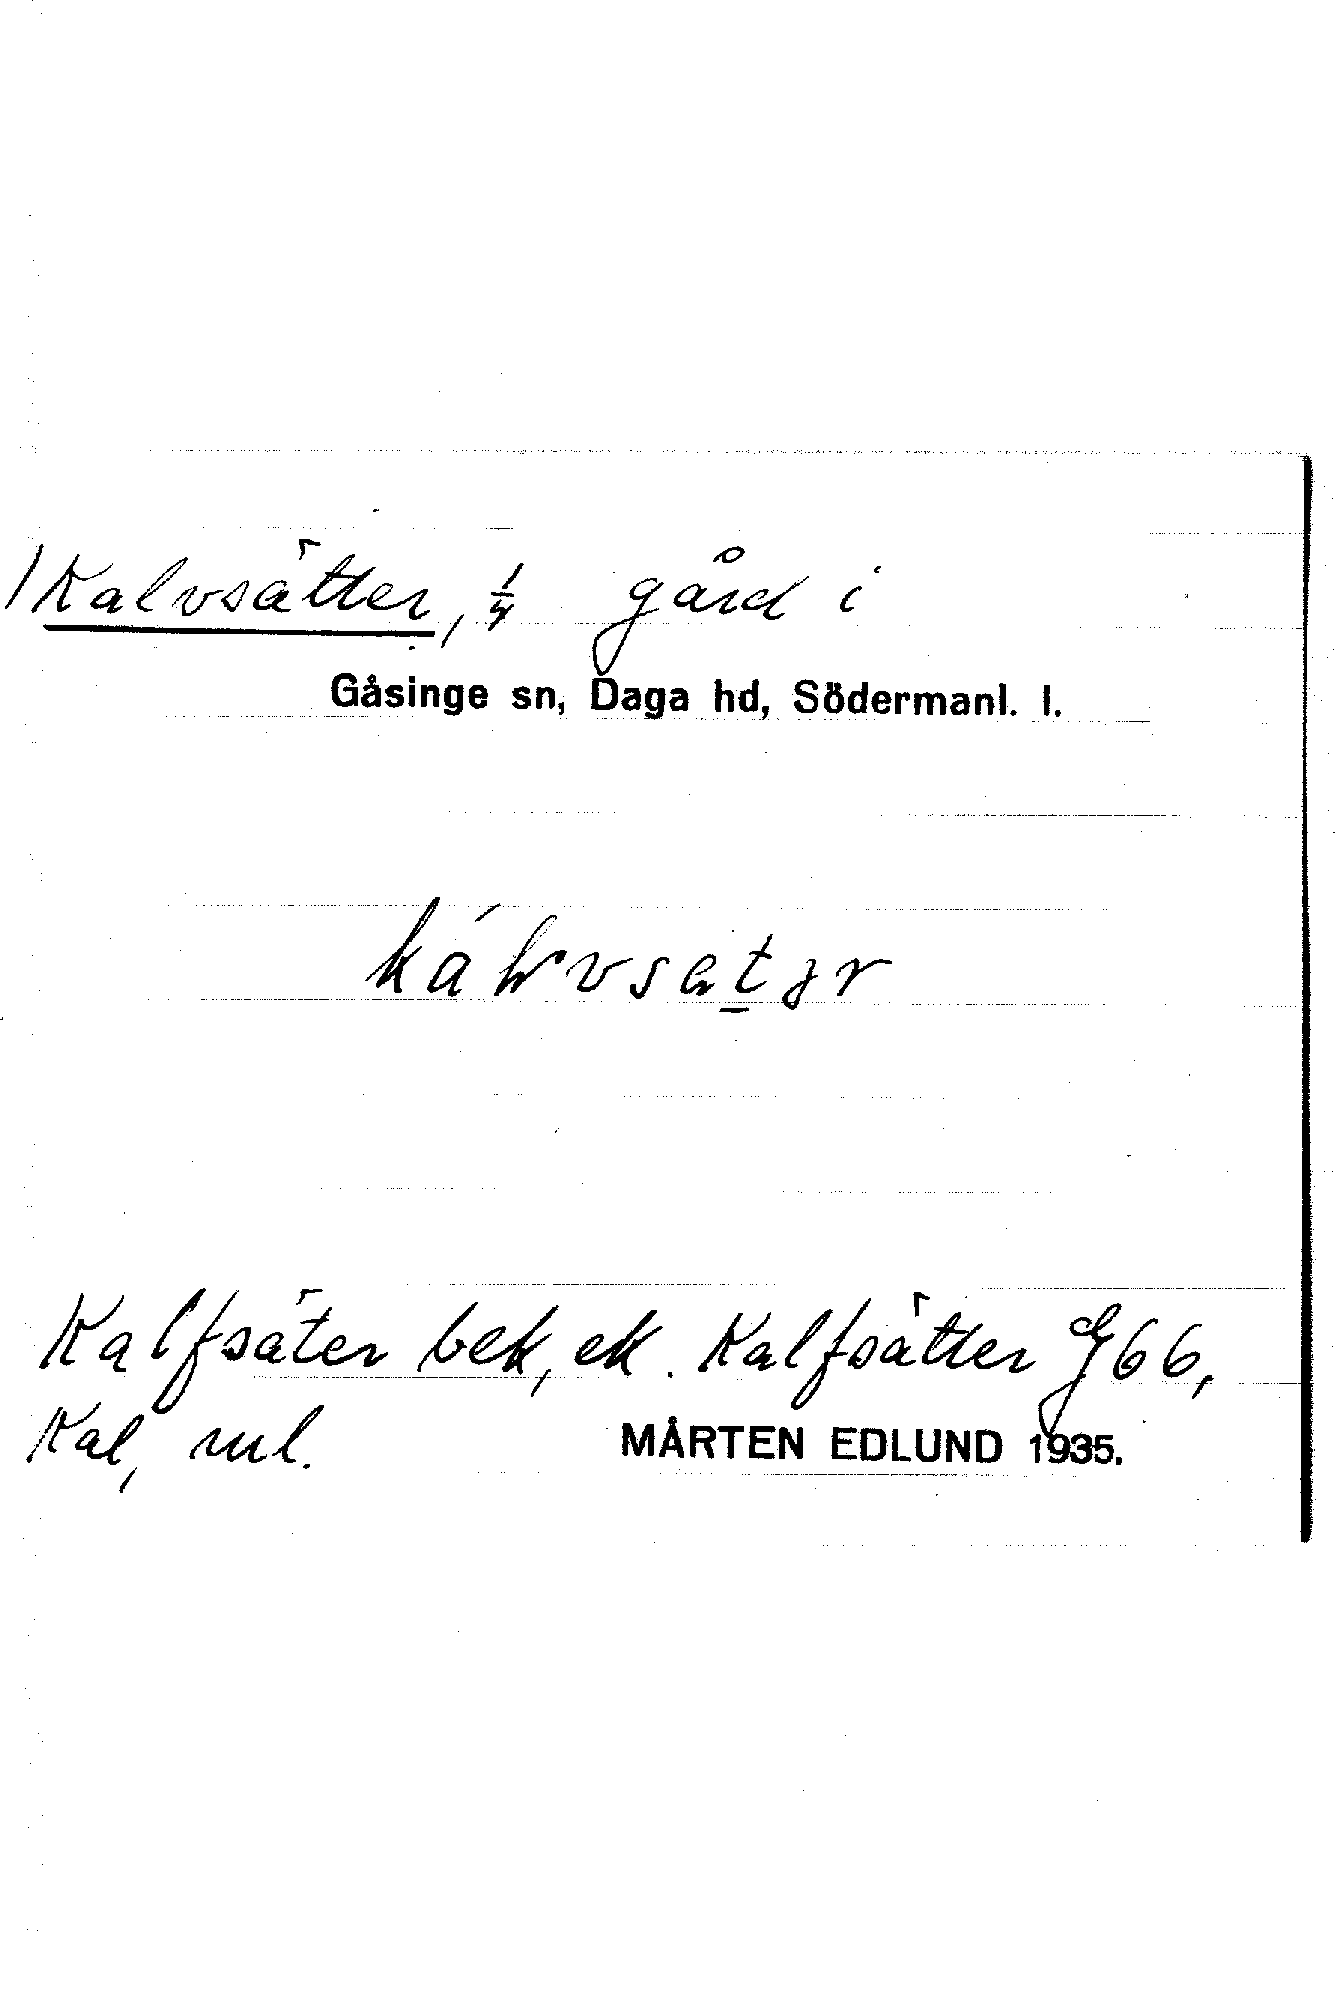 Kalvsätter, 1/4 gård i
Gåsinge sn, Daga hd, Södermanl. l.
Kalfsäter bek, ek. Kalfsätter G66,
Kal, ml.
MÅRTEN EDLUND 1935.